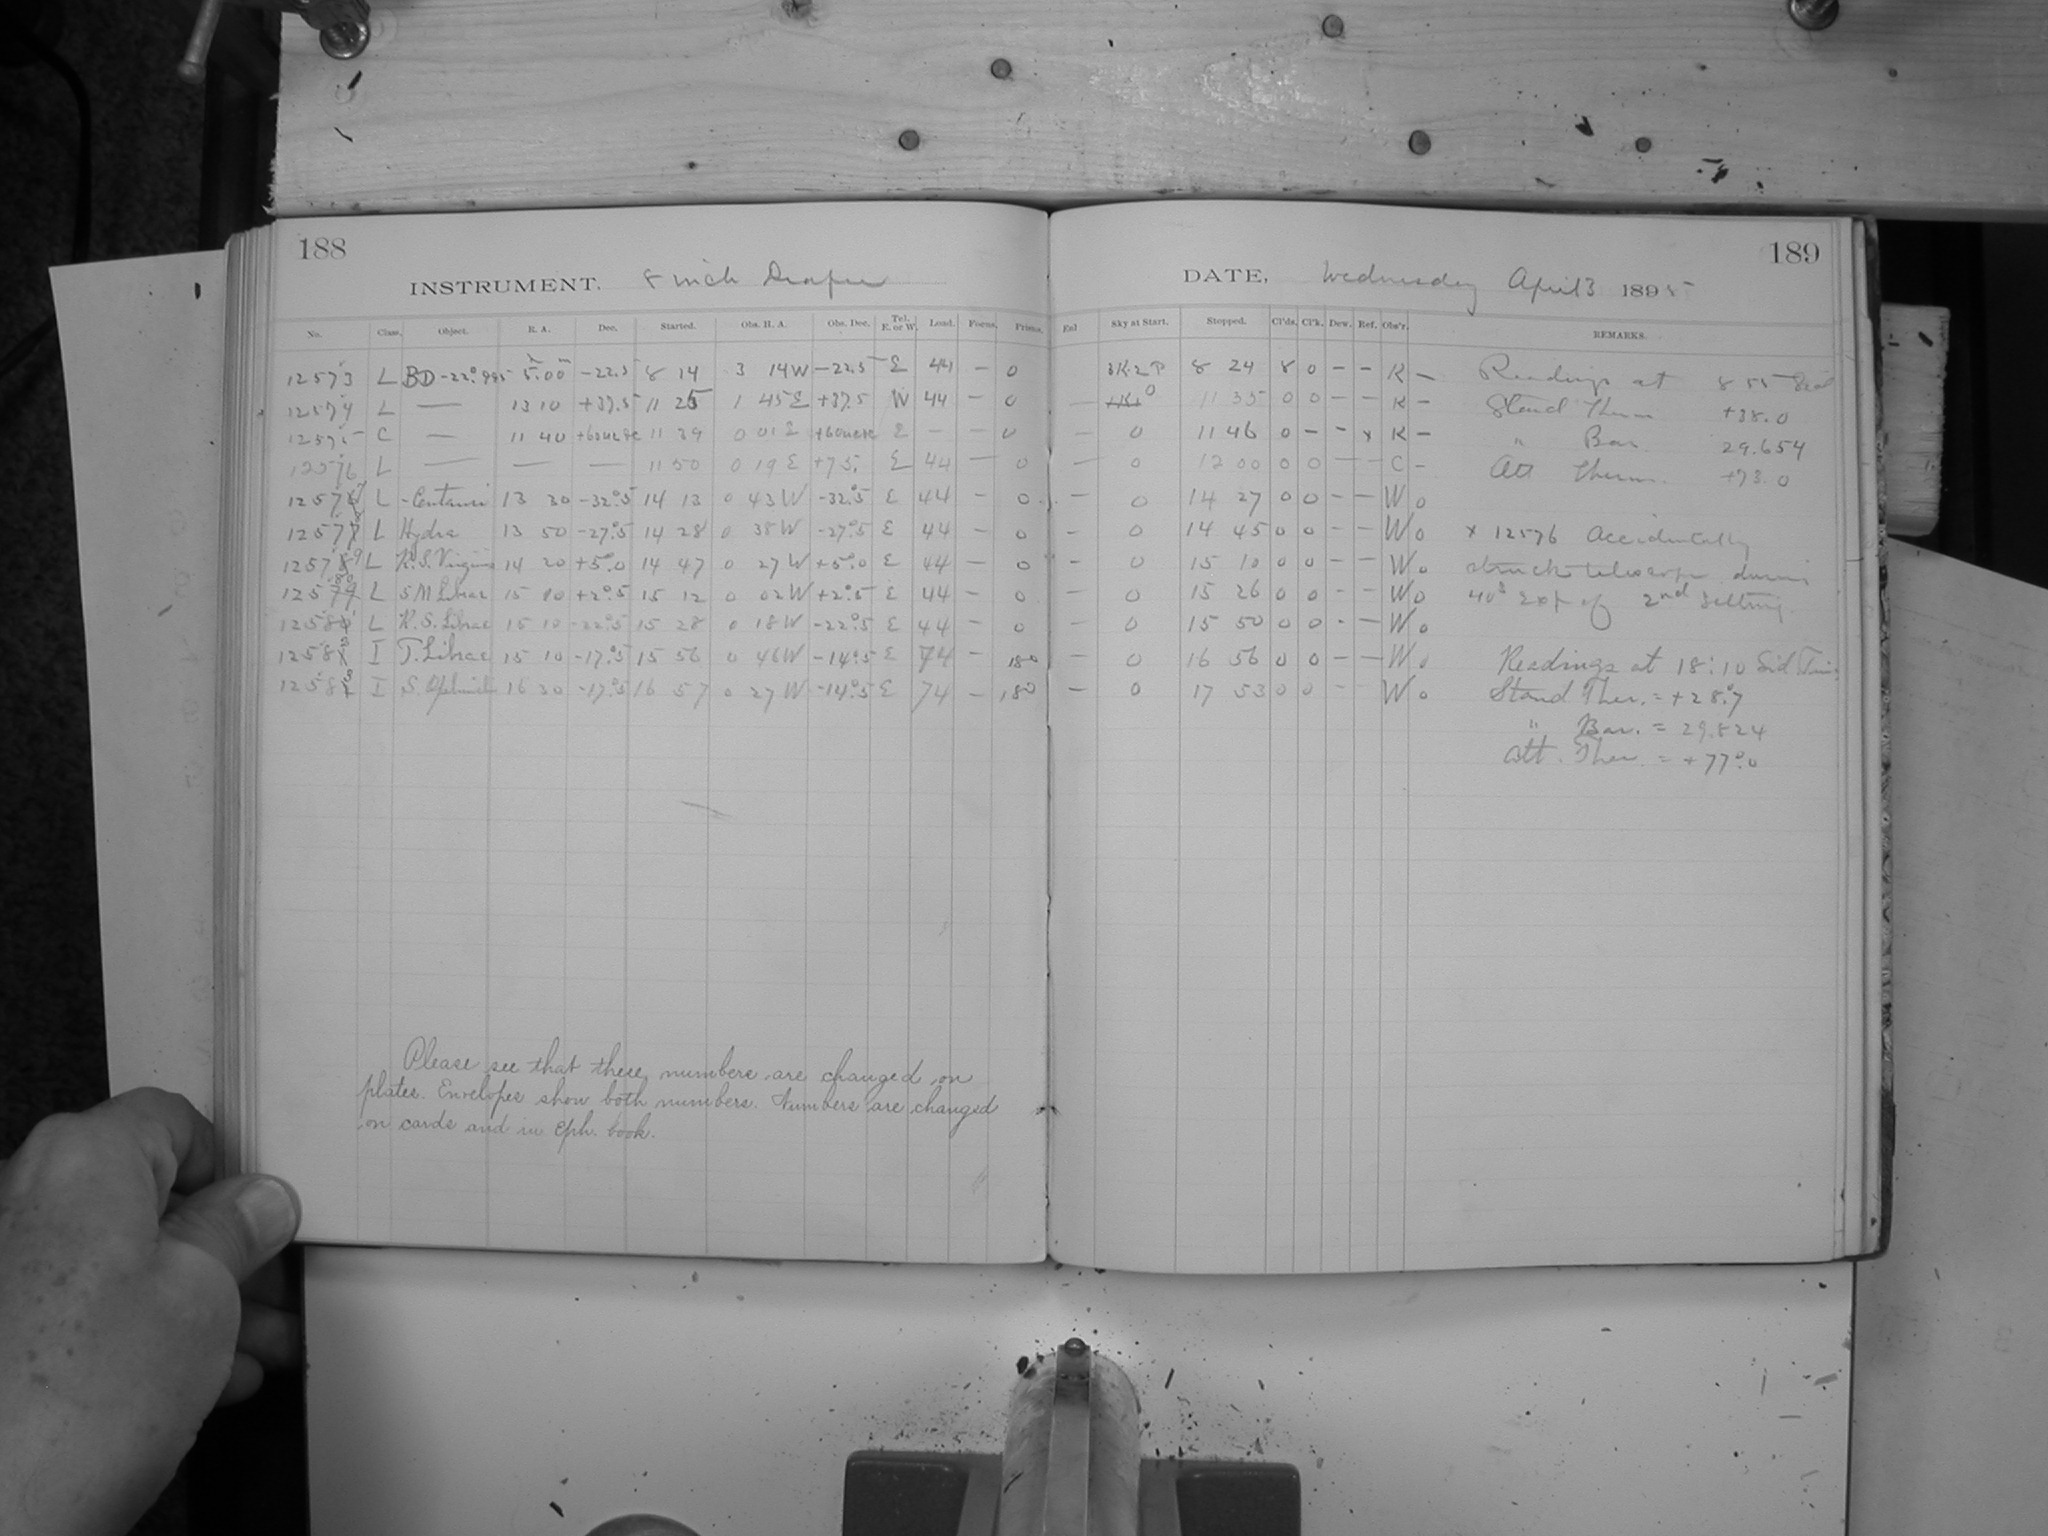 188
INSTRUMENT. 8 inch Draper
No. Class. Object. R. A. Dec. Started. Obs. H. A. Obs. Dec. Tel. E. or W. Load. Focus. Prisms.
12573 L BD -22°.995 5.00 -22.5 8 14 3 14 W -22.5 E 44 - 0
12574 L — 13 10 +37.5 11 25 1 45 E +37.5 W 44 - 0
12575 C — 11 40 11 39 0 01 E E - - 0
12576 L — — — 11 50 0 19 E +75. E 44 — 0
12577 L - Centauri 13 30 -32°.5 14 13 0 43 W -32°.5 E 44 - 0
12578 L Hydra 13 50 -27°.5 14 28 0 38 W -27°.5 E 44 - 0
12579 L R.S. Virginis 14 20 +5°.0 14 47 0 27 W +5°.0 E 44 - 0
12580 L S M Librae 15 10 +2°.5 15 12 0 02 W +2°.5 E 44 - 0
1258 L R.S. Librae 15 10 -22°.5 15 28 0 18 W -22°.5 E 44 - 0
1258 I T. Librae 15 10 -17°.5 15 56 0 46 W -14°.5 E 74 - 180
12583 I S. Ophiuchi 16 30 -17°.5 16 57 0 27 W -14°.5 E 74 - 180
Please see that these numbers are changed on
plates. Envelopes show both numbers. Numbers are changed
on cards and in Eph. book.
189
DATE, Wednesday April 3 1895
Enl Sky at Start. Stopped. Cl'ds. Cl'k. Dew. Ref. Obs'r. REMARKS.
8 24 8 0 - - K - Readings at 8 55 Sid
— 0 11 35 0 0 - - K - Stand Therm +38.0
— 0 11 46 0 - - x K - " Bar 29.654
— 0 12 00 0 0 — — C - Att Therm. +73.0
— 0 14 27 0 0 - - W 0
- 0 14 45 0 0 - - W 0 x 12576 Accidentally
- 0 15 10 0 0 - - W 0 struck telescope during
- 0 15 26 0 0 - - W 0 40s Exp of 2nd setting.
- 0 15 50 0 0 - — W 0
— 0 16 56 0 0 - — W 0 Readings at 18:10 Sid Time
- 0 17 53 0 0 - - W 0 Stand Ther. = +28°.7
" Bar. = 29.824
Att. Ther. = +77°.0